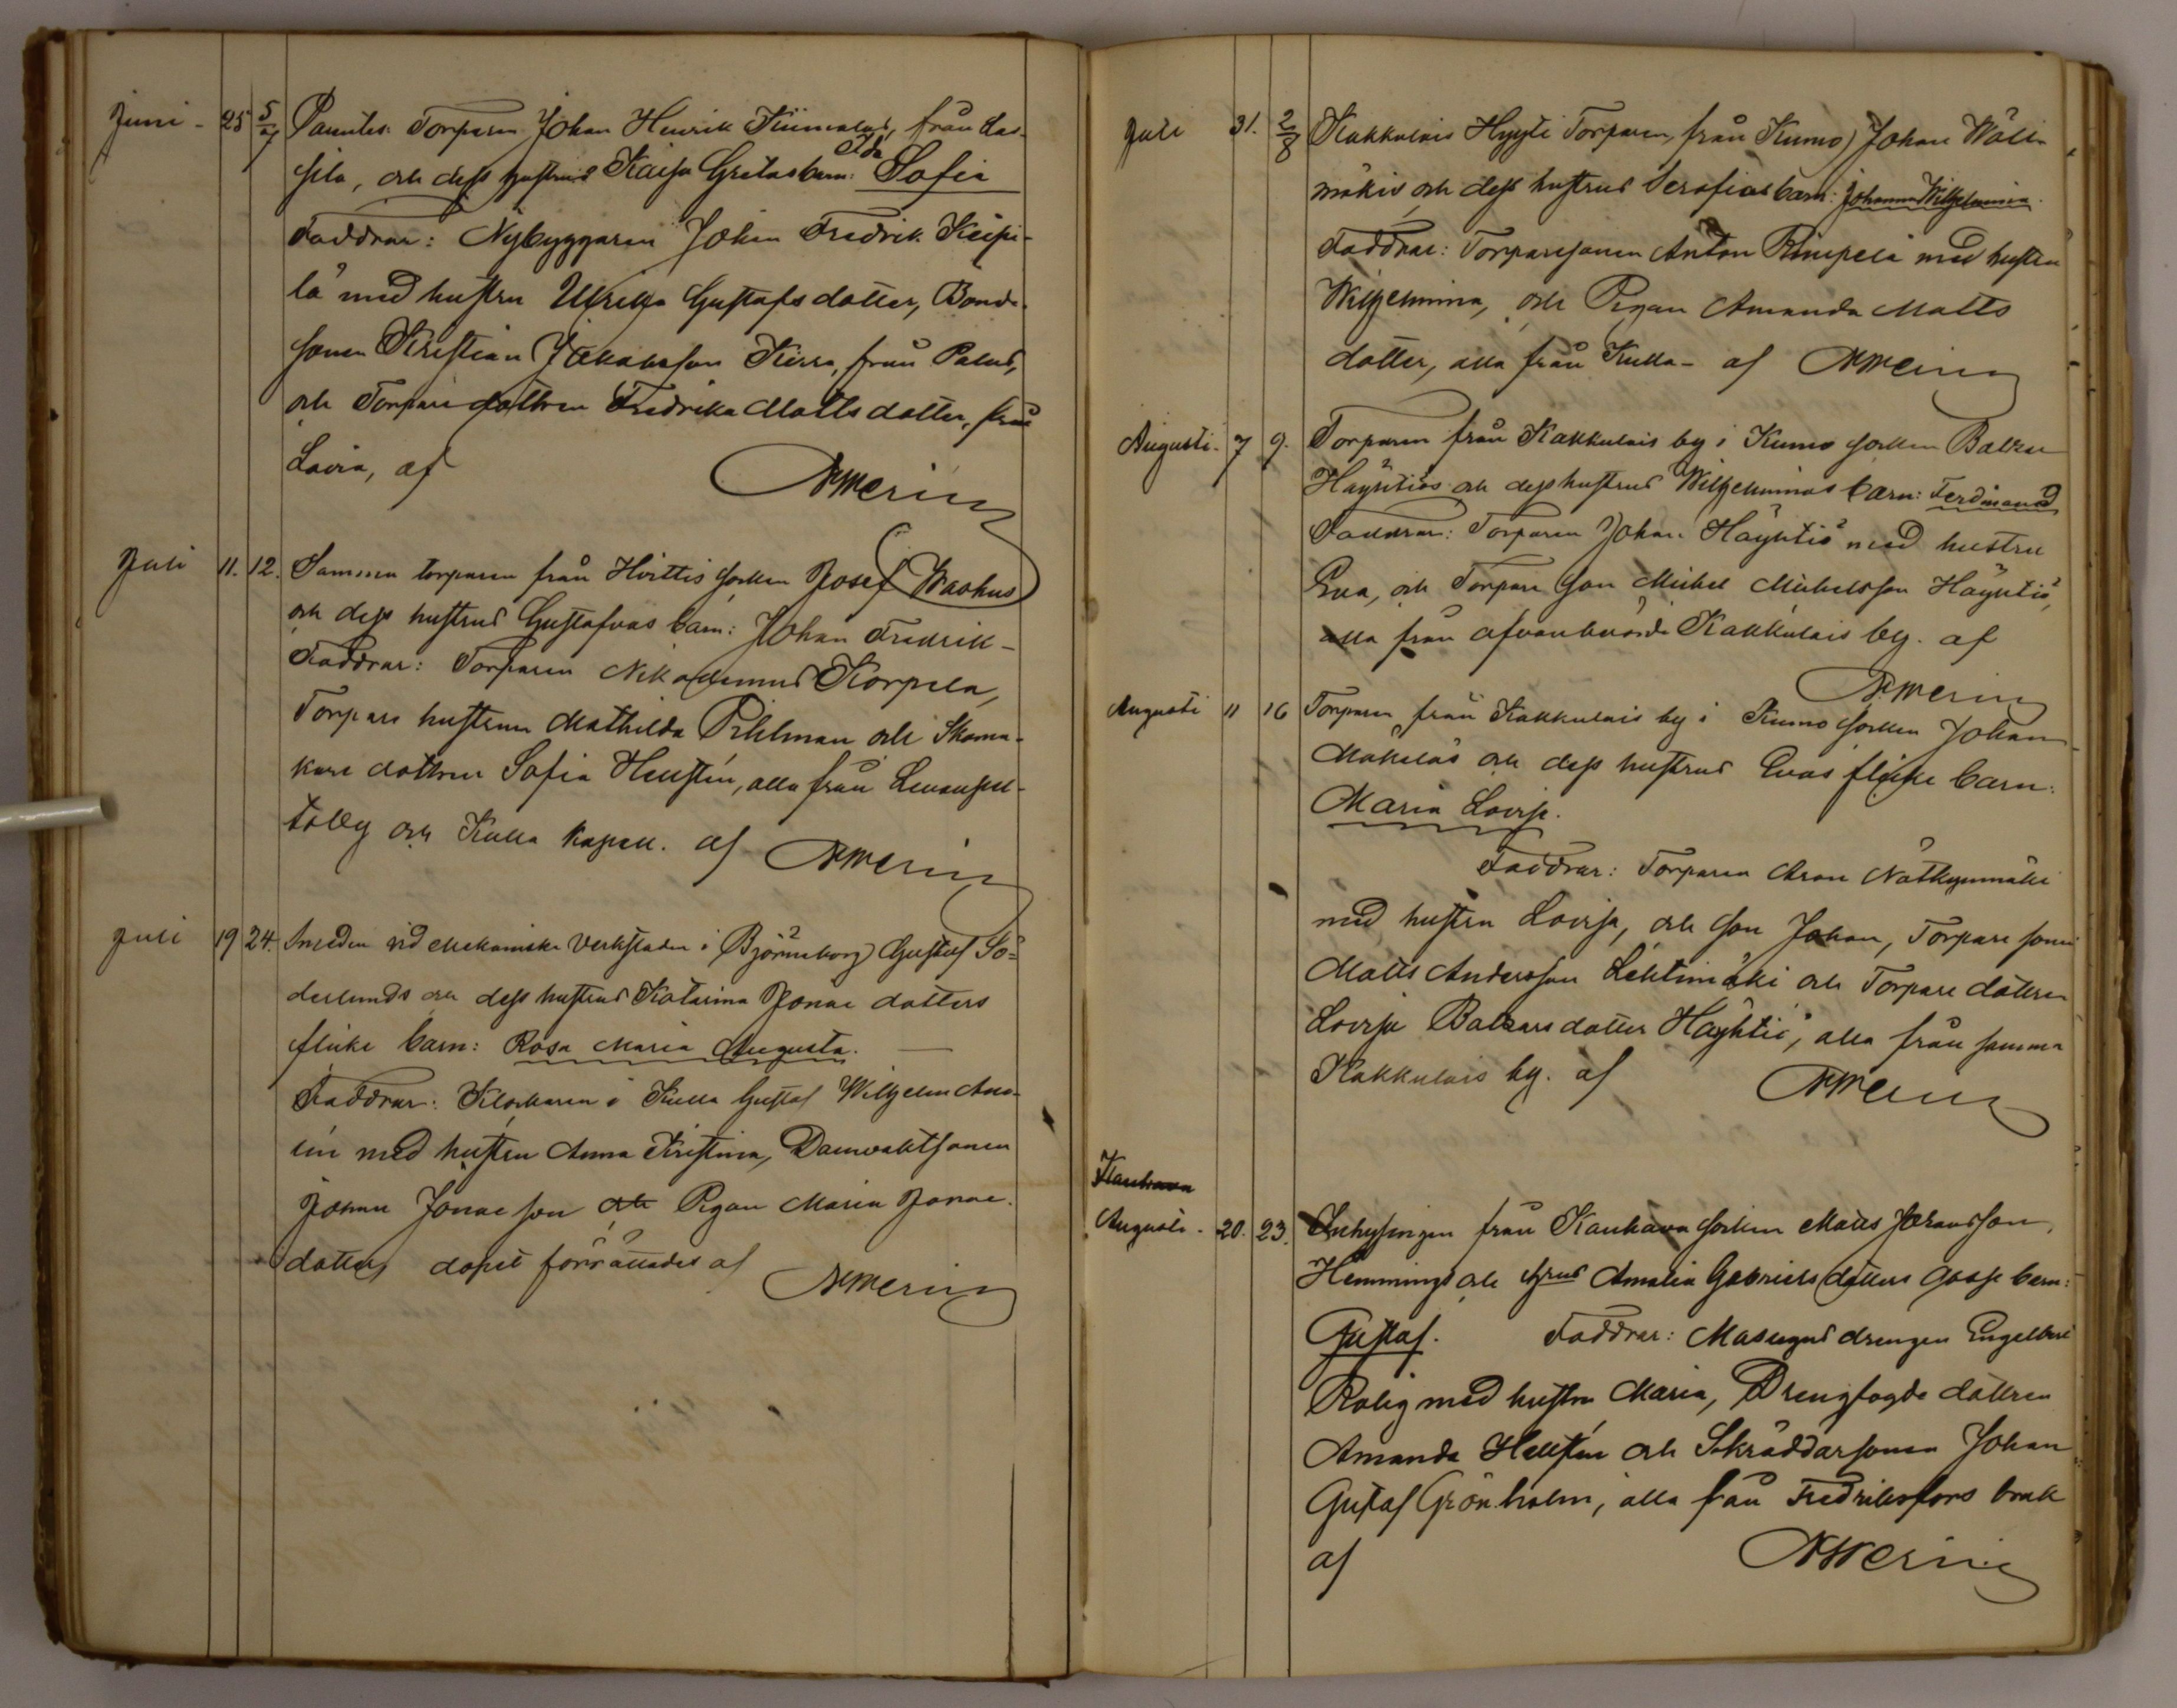 Juni - 25 5/7 Parentes: Torparen Johan Henrik Kiimalas, från Las-
Ida
sila, och dess hustrus Kaisa Gretas barn: Sofia
Faddrar: Nybyggaren Johan Fredrik Keipi-
lä med hustru Ulrika Gustafsdotter, Bonde-
sonen Kristian Jakobsson Kirra, från Palus,
och Torparedottren Fredrika Mattsdotter, från
Lavia, af
Juli 11. 12. Torparen från Hvittis socken Josef
och dess hustrus Gustafvas barn: Johan Fredrik -
Faddrar: Torparen Nikodemus Korpela,
Torpare hustrun Mathilda Pihlman och Skoma-
kare dottren Sofia Hellstén, alla från
by och Kulla kapell. af
Juli 19 24. Smeden vid Mekaniska Verkstaden i Björneborg Gustaf Sö-
derlunds och dess hustrus Katarina Jonae dotters
flicke barn: Rosa Maria Augusta. —
Faddrar: Klockaren i Kulla Gustaf Wilhelm
med hustru Anna Kristina, Damvaktsonen
Johan Jonae son och Pigan Maria Jonae
dotter, dopet förrättades af
Juli 31. 2/8 Kakkulais Hyyti Torparen, från Kumo, Johan Wäli-
mäkis och dess hustrus Serafias barn: Johanna Wilhelmina.
Faddrar: Torparesonen Anton Rimpelä med hustru
Wilhelmina, och Pigan Amanda Matts
dotter, alla från Kulla - af
Augusti. 7 9. Torparen från Kakkulais by i Kumo socken Baltzar
Häyhtiös och dess hustrus Wilhelminas barn: Ferdinand
Faddrar: Torparen Johan Häyhtiö med hustru
Eva, och Torpare son Mickel Mickelsson Häyhtiö,
alla från ofvanberörde Kakkulais by. af
Augusti 11 16 Torparen från Kakkulais by i Kumo socken Johan
Mäkeläs och dess hustrus Evas flicke barn:
Maria Lovisa.
Faddrar: Torparen Aron Nätkynmäki
med hustru Lovisa, och son Johan, Torpare sonen
Matts Andersson Lehtimäki och Torpare dottren
Lovisa Baltzarsdotter Häyhtiö, alla från samma
Kakkulais by. af
Kauhava
Augusti - 20. 23. Inhysingen från Kauhava socken Matts Johansson
Hemmings och hrus Amalia Gabrielsdotters gosse barn:
Gustaf. Faddrar: Masugns drengen Engelbert
Rolig med hustru Maria, Drengfogde dottren
Amanda Hellstén och Skräddarsonen Johan
Gustaf Grönholm, alla från Fredriksfors bruk
af